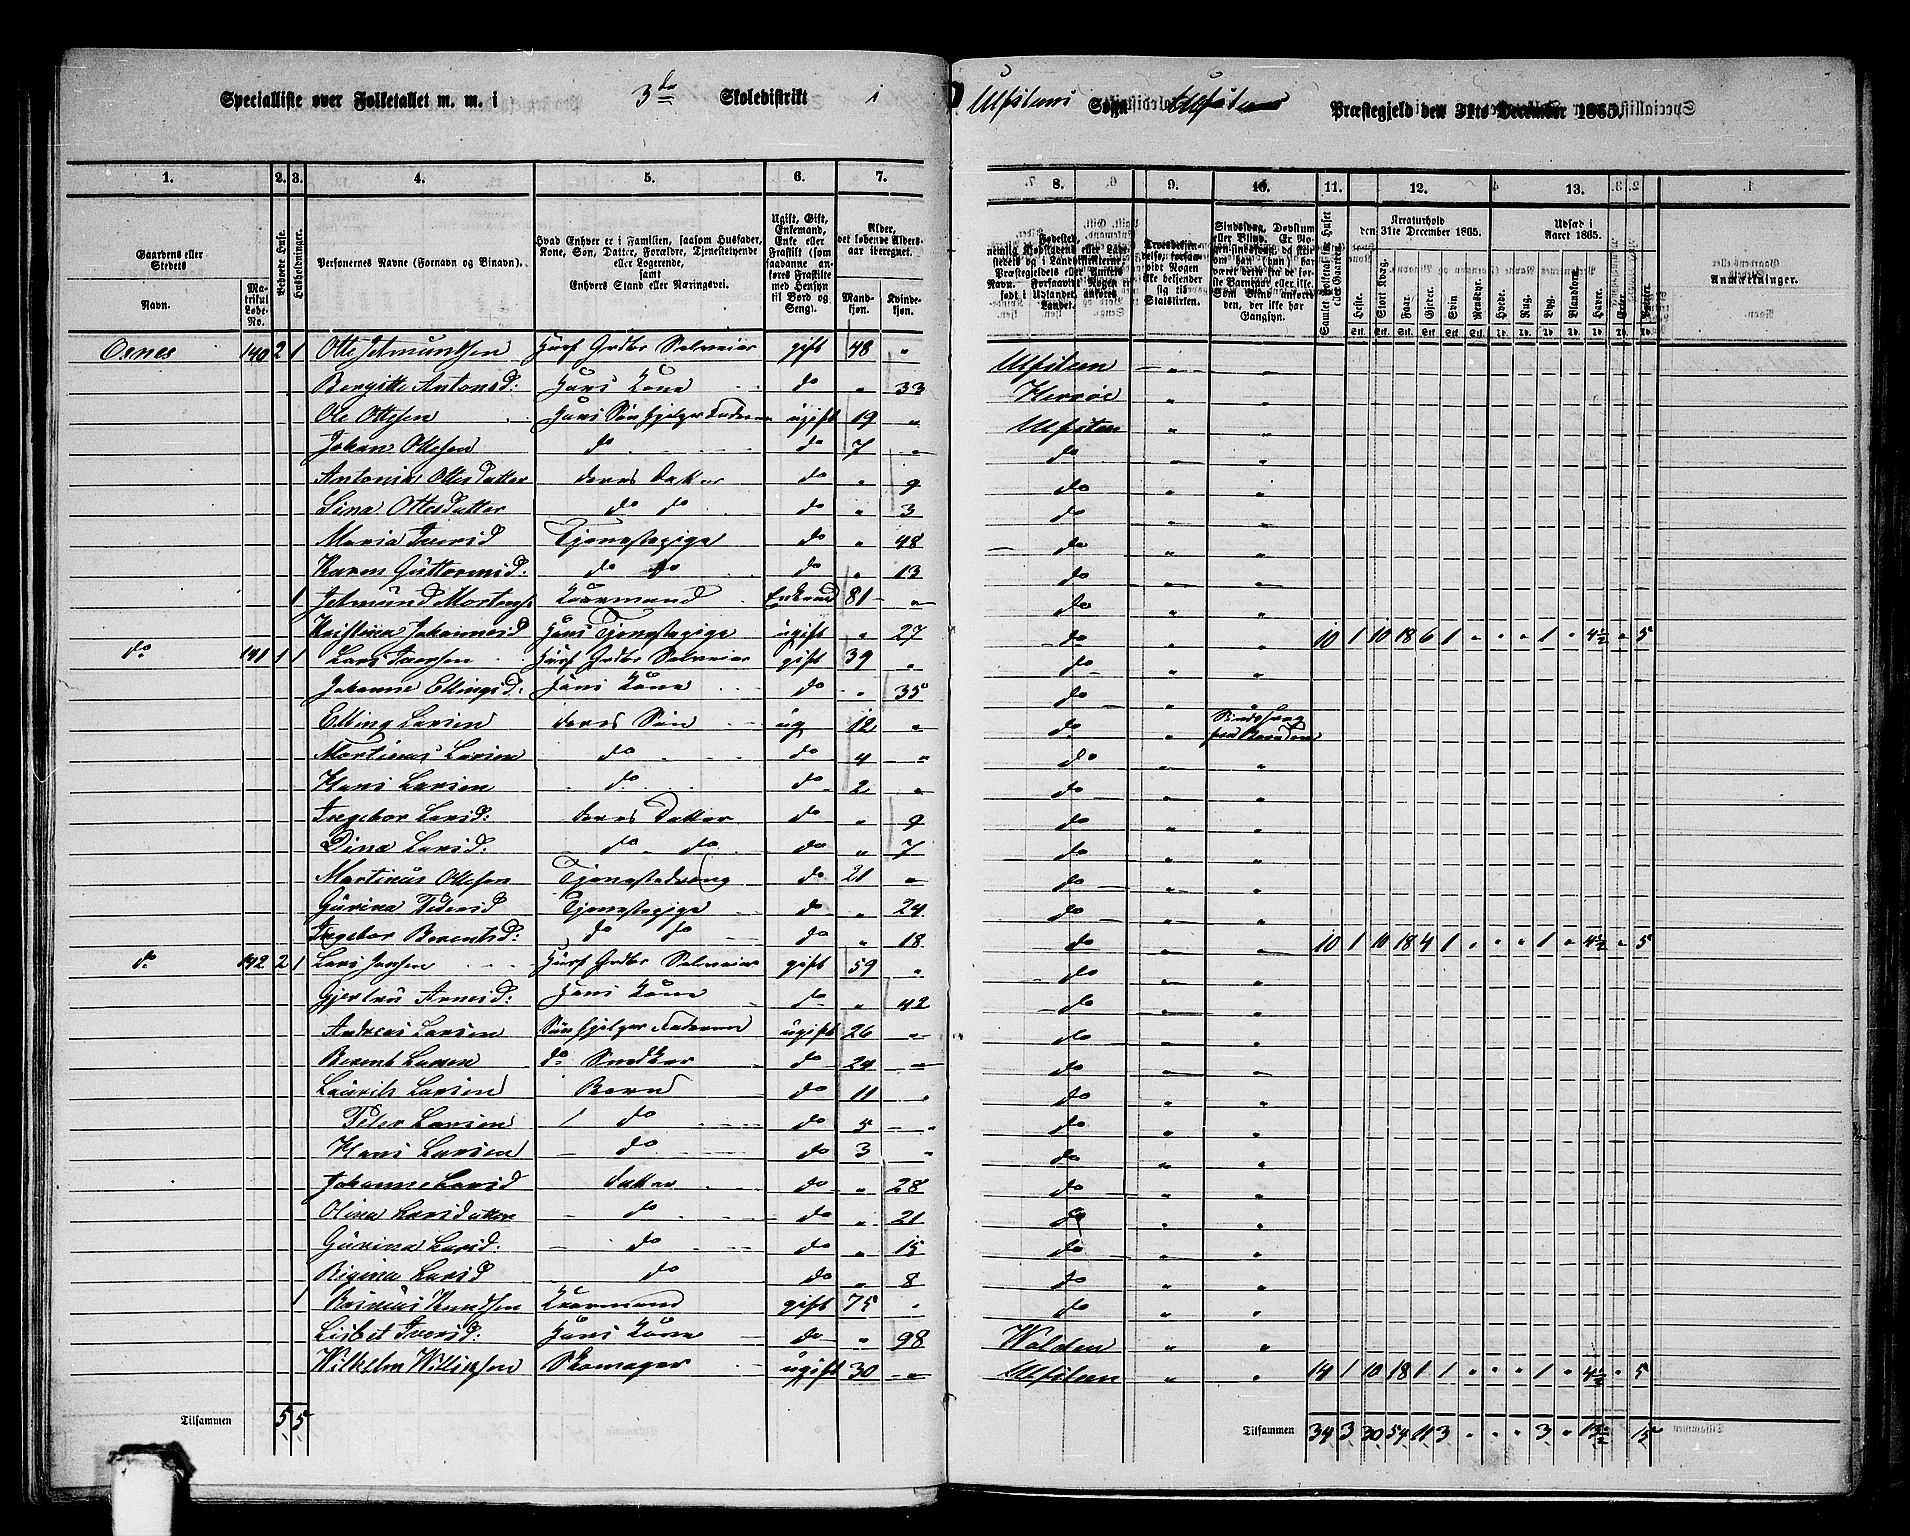 Specialliste over Folketallet m. m. i 3die Skoledistrikt i Ulfsteens Sogn Ulfsteens Præstegjeld den 31te December 1865.
1. 2. 3. 4. 5. 6. 7. 8. 9. 10. 11. 12. 13.
Gaardens eller Stedets Navn. Matrikul Løbe-No. Beboede Huse. Husholdninger. Personernes Navne (Fornavn og Binavn). Hvad Enhver er i Familien, saasom Husfader, Kone, Søn, Datter, Forældre, Tjenestetyende eller Logerende, samt Enhvers Stand eller Næringsvei. Ugift, Gift, Enkemand, Enke eller Fraskilt (som saadanne anføres Fraskilte med Hensyn til Bord og Seng). Alder, det løbende Aldersaar iberegnet. Mandkjøn. Kvindekjøn.
Kreaturhold den 31te December 1865. Udsæd i Aaret 1865. Anmærkninger.
Heste. Stort Kvæg. Faar. Gjeder. Svin. Rensdyr. Hvede. Rug. Byg. Blandkorn. Havre. Erter. Poteter.
Osnes 140 2 1 Otte Jetmundsen Huusf Grdbr Selveier gift 48 " Ulfsteen " "
Bergitte Antonsd: Hans Kone do " 33 Herrøe " "
Ole Ottesen Hans Søn hjelper Faderen ugift 19 " Ulfsteen " "
Johan Ottesen do do 7 " do " "
Antonia Ottesdatter deres Datter do " 9 do " "
Sina Ottesdatter do do do " 3 do " "
Maria Iversd Tjenestepige do " 48 do " "
Karen Guttormsd: do do do " 13 do " "
1 Jetmund Mortens: Kaarmand Enkemd 81 " do " "
Kristina Johannesd Hans Tjenestepige ugift " 27 do " " 10 1 10 18 6 1 " " " 1 " 4½ " 5
do 141 1 1 Lars Iversen Huusf Grdbr Selveier gift 39 " do " "
Johanne Ellingsd: Hans Kone do " 35 do " "
Elling Larsen deres Søn ug 12 " do " Sindssvag fra Barndom
Martinus Larsen do do 4 " do " "
Hans Larsen do do 2 " do " "
Ingebor Larsd: deres Datter do " 9 do " "
Dina Larsd: do do do " 7 do " "
Martinus Ottesen Tjenestedreng do 21 " do " "
Gurina Pedersd Tjenestepige do " 24 do " "
Ingebor Berentsd: do do do " 18 do " " 10 1 10 18 4 1 " " " 1 " 4½ " 5
do 142 2 1 Lars Jensen Huusf Grdbr Selveier gift 59 " do " "
Gjertru Arnesd: Hans Kone do " 42 do " "
Andreas Larsen Søn hjelper Faderen ugift 26 " do " "
Berent Larsen do Snedker do 24 " do " "
Laurits Larsen Barn do 11 " do " "
Peter Larsen do do 5 " do " "
Hans Larsen do do 3 " do " "
Johanne Larsd datter do " 28 do " "
Olina Larsdatter do do " 21 do " "
Gurina Larsd: do do " 15 do " "
Regina Larsd do do " 8 do " "
1 Rasmus Knudsen Kaarmand gift 75 " do " "
Lisbet Iversd: Hans Kone do " 98 Volden " "
Wilhelm Willingsen Skomager ugift 30 " Ulfsteen " " 14 1 10 18 1 1 " " " 1 " 4½ " 5
Tilsammen 5 5 Tilsammen 34 3 30 54 11 3 " " " 3 " 13½ 15